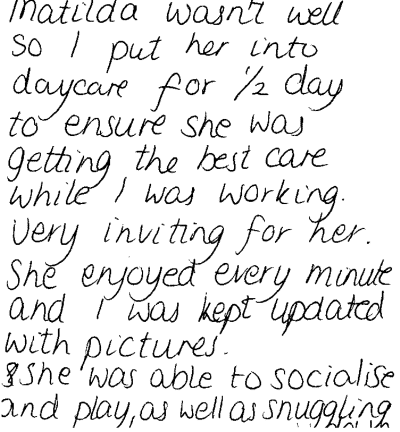 Matilda wasn't well
So I put her into
daycare for 1/2 day
to ensure she was
getting the best care
while I was working.
Very inviting for her.
She enjoyed every minute
and I was kept updated
with pictures.
She was able to socialise
and play, as well as snuggling